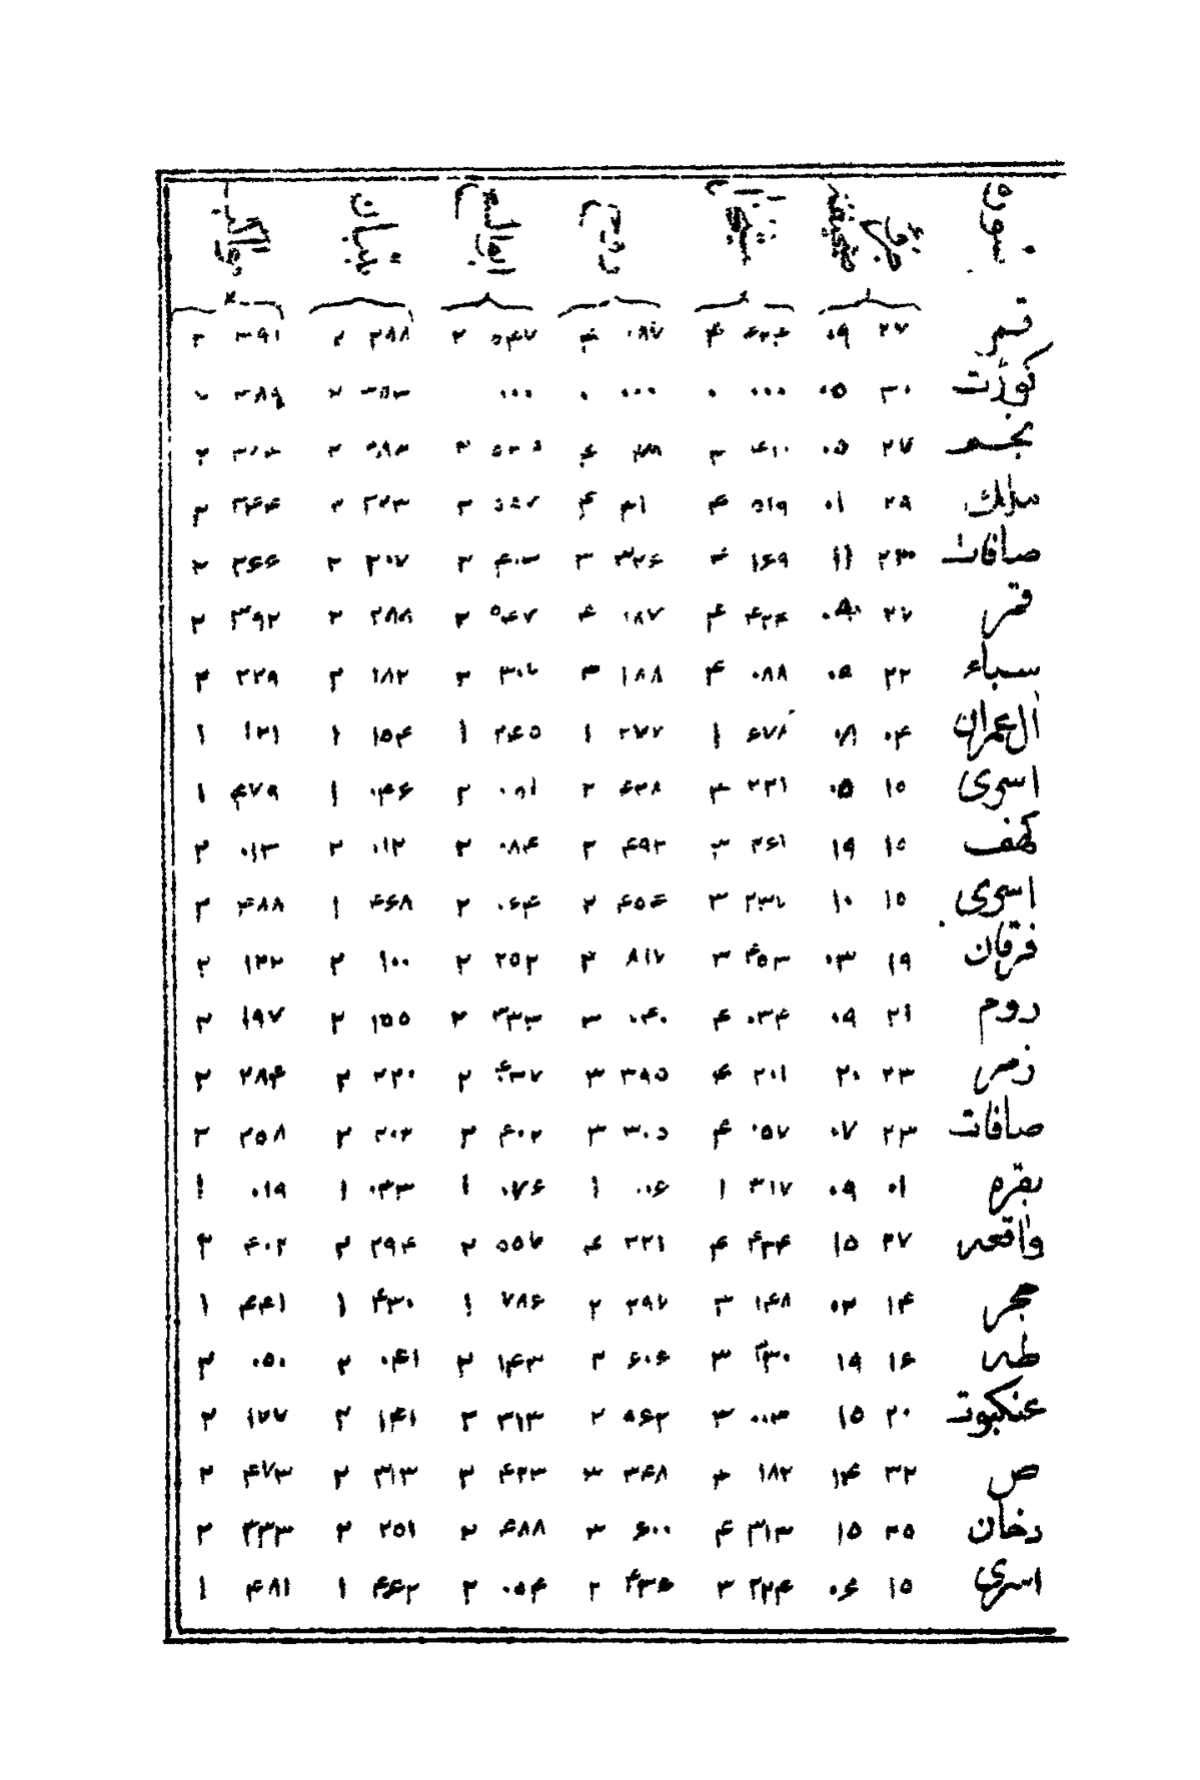 سوره جزؤ صحيفه شيخزاده روح ابو السعود تبيان مواكب
قمر ٢٧ ٠٩ ٤٢٤ ٤ ٠٨٧ ٤ ٥٤٧ ٢ ٢٨٨ ٢ ٣٩١ ٢
كورت ٣٠ ٠٥ ٠٠٠ ٠ ٠٠٠ ٠ ٠٠٠ ٣٥٣ ٢ ٣٨٩ ٢
نجم ٢٧ ٠٥ ٤١٠ ٣
ملك ٢٩ ٠١ ٥١٩ ٤ ٤١ ٤ ٣٢٣ ٢ ٣٤٤ ٢
صافات ٢٣ ١١ ١٦٩ ٤ ٣٢٦ ٣ ٤٠٣ ٢ ٢٠٧ ٢ ٢٦٦ ٢
قمر ٢٧ ٠٩ ٤٢٤ ٤ ١٨٧ ٤ ٥٤٧ ٢ ٢٨٨ ٢ ٣٩٢ ٢
سباء ٢٢ ٠٨ ٠٨٨ ٤ ١٨٨ ٣ ٣٠٦ ٢ ١٨٢ ٢ ٢٢٩ ٢
ال عمران ٠٤ ٠٨ ٦٧٨ ١ ٢٧٢ ١ ٢٤٥ ١ ١٥٤ ١ ١٢١ ١
اسرى ١٥ ٠٥ ٢٢١ ٣ ٤٣٨ ٢ ٠٥١ ٢ ٠٤٦ ١ ٤٧٩ ١
كهف ١٥ ١٩ ٢٦١ ٣ ٤٩٢ ٢ ٠٨٤ ٢ ٠١٢ ٢ ٠١٣ ٢
اسرى ١٥ ١٠ ٢٣٦ ٣ ٤٥٤ ٢ ٠٦٤ ٢ ٤٦٨ ١ ٤٨٨ ٢
فرقان ١٩ ٠٣ ٤٥٣ ٣ ٨١٧ ٢ ٢٥٢ ٢ ١٠٠ ٢ ١٢٢ ٢
روم ٢١ ٠٩ ٠٣٤ ٤ ٠٤٠ ٣ ٣٣٣ ٢ ١٥٥ ٢ ١٩٧ ٢
زمر ٢٣ ٢٠ ٢٠١ ٤ ٣٩٥ ٣ ٤٣٧ ٢ ٢٢٠ ٢ ٢٨٤ ٢
صافات ٢٣ ٠٧ ٠٥٧ ٤ ٣٠٥ ٣ ٤٠٢ ٢ ٢٠٢ ٢ ٢٥٨ ٢
بقره ٠١ ٠٩ ٣١٧ ١ ٠٠٦ ١ ٠٧٦ ١ ٠٣٣ ١ ٠١٩ ١
واقعه ٢٧ ١٥ ٤٣٤ ٤ ٢٢١ ٤ ٥٥٦ ٢ ٢٩٤ ٢ ٤٠٢ ٢
حجر ١٤ ٠٢ ١٤٨ ٣ ٢٩٧ ٢ ٧٨٦ ١ ٤٣٠ ١ ٤٤١ ١
طه ١٦ ١٩ ٣٣٠ ٣ ٦٠٦ ٢ ١٤٣ ٢ ٠٤١ ٢ ٠٥٠ ٢
عنكبوت ٢٠ ١٥ ٠٠٣ ٣ ٥٦٢ ٢ ٣١٣ ٢ ١٤١ ٢ ١٧٧ ٢
ص ٢٣ ١٤ ١٨٢ ٤ ٣٤٨ ٣ ٤٢٣ ٢ ٣١٣ ٢ ٤٧٣ ٢
دخان ٢٥ ١٥ ٣١٣ ٤ ٦٠٠ ٣ ٤٨٨ ٢ ٢٥١ ٢ ٣٣٣ ٢
اسرى ١٥ ٠٦ ٢٢٤ ٣ ٤٣٤ ٢ ٠٥٤ ٢ ٤٦٢ ١ ٤٨١ ١